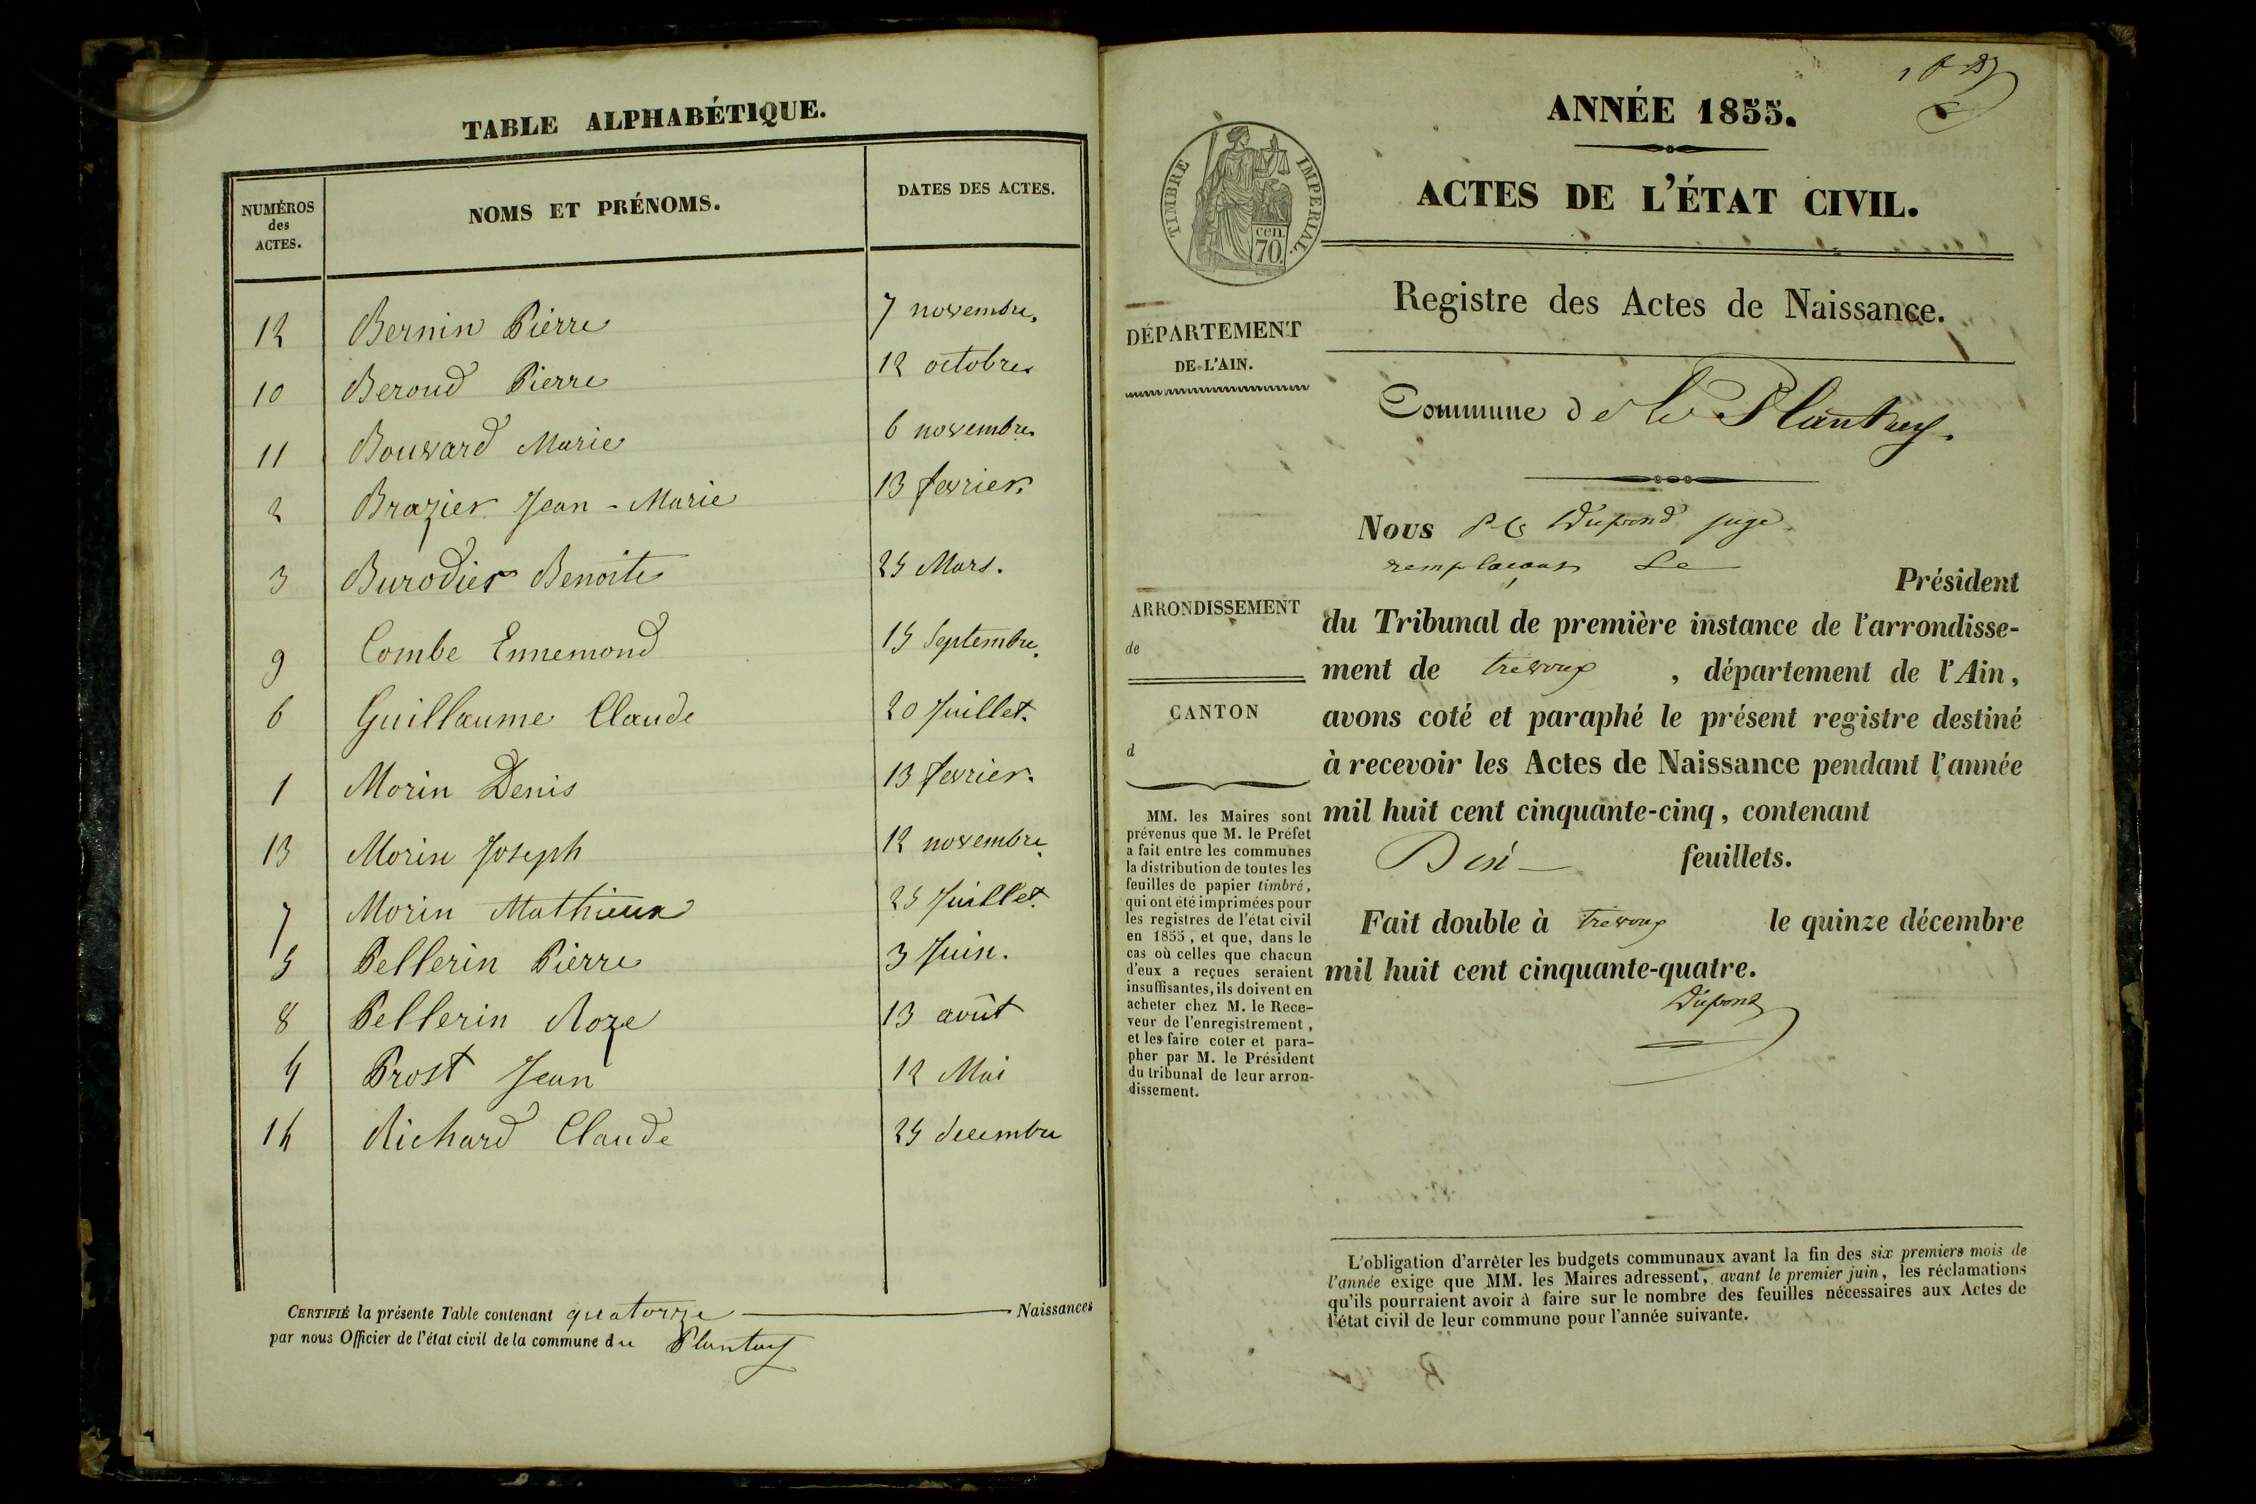 TABLE ALPHABÉTIQUE.
NUMÉROS
des
ACTES.
NOMS ET PRÉNOMS.
DATES DES ACTES.
12 Bernin Pierre 7 novembre.
10 Beroud Pierre 12 octobre
11 Bouvard Marie 6 novembre
2 Brazier Jean - Marie 13 fevrier.
3 Burodier Benoite 25 Mars.
9 Combe Ennemond 15 Septembre.
6 Guillaume Claude 20 Juillet.
1 Morin Denis 13 fevrier.
13 Morin Joseph 12 novembre.
7 Morin Mathieux 25 Juillet.
5 Pellerin Pierre 3 Juin.
8 Pellerin Roze 13 août
4 Prost Jean 12 Mai
14 Richard Claude 25 decembre
CERTIFIÉ la présente Table contenant quatorze Naissances
par nous Officier de l'état civil de la commune du Plantay
ANNÉE 1855.
ACTES DE L'ÉTAT CIVIL.
TIMBRE IMPERIAL.
cen.
70.
Registre des Actes de Naissance.
DÉPARTEMENT
DE L'AIN.
Commune de le Plantay.
Nous Dupond juge
remplaçant le
Président
du Tribunal de première instance de l'arrondisse-
ment de trevoux , département de l'Ain,
avons coté et paraphé le présent registre destiné
à recevoir les Actes de Naissance pendant l'année
mil huit cent cinquante-cinq, contenant
feuillets.
Fait double à trevoux le quinze décembre
mil huit cent cinquante-quatre.
Dupond
ARRONDISSEMENT
de
CANTON
d
MM. les Maires sont
prévenus que M. le Préfet
a fait entre les communes
la distribution de toutes les
feuilles de papier timbré,
qui ont été imprimées pour
les registres de l'état civil
en 1855, et que, dans le
cas où celles que chacun
d'eux a reçues seraient
insuffisantes, ils doivent en
acheter chez M. le Rece-
veur de l'enregistrement,
et les faire coter et para-
pher par M. le Président
du tribunal de leur arron-
dissement.
L'obligation d'arrêter les budgets communaux avant la fin des six premiers mois de
l'année exige que MM. les Maires adressent, avant le premier juin, les réclamations
qu'ils pourraient avoir à faire sur le nombre des feuilles nécessaires aux Actes de
l'état civil de leur commune pour l'année suivante.